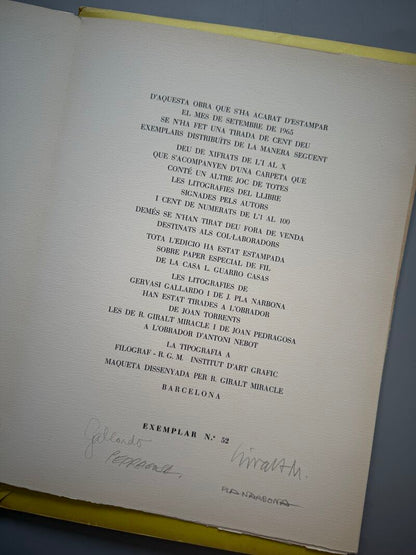 D'AQUESTA OBRA QUE S'HA ACABAT D'ESTAMPAR
EL MES DE SETEMBRE DE 1965
SE N'HA FET UNA TIRADA DE CENT DEU
EXEMPLARS DISTRIBUÏTS DE LA MANERA SEGÜENT
DEU DE XIFRATS DE L'I AL X
QUE S'ACOMPANYEN D'UNA CARPETA QUE
CONTÉ UN ALTRE JOC DE TOTES
LES LITOGRAFIES DEL LLIBRE
SIGNADES PELS AUTORS
I CENT DE NUMERATS DE L'1 AL 100
DEMÉS SE N'HAN TIRAT DEU FORA DE VENDA
DESTINATS ALS COL·LABORADORS
TOTA L'EDICIÓ HA ESTAT ESTAMPADA
SOBRE PAPER ESPECIAL DE FIL
DE LA CASA L. GUARRO CASAS
LES LITOGRAFIES DE
GERVASI GALLARDO I DE J. PLA NARBONA
HAN ESTAT TIRADES A L'OBRADOR
DE JOAN TORRENTS
LES DE R. GIRALT MIRACLE I DE JOAN PEDRAGOSA
A L'OBRADOR D'ANTONI NEBOT
LA TIPOGRAFIA A
FILOGRAF - R. G. M. INSTITUT D'ART GRAFIC
MAQUETA DISSENYADA PER R. GIRALT MIRACLE
BARCELONA
EXEMPLAR N.º 52
Gallardo
Giralt M.
PEDRAGOSA.
PLA NARBONA